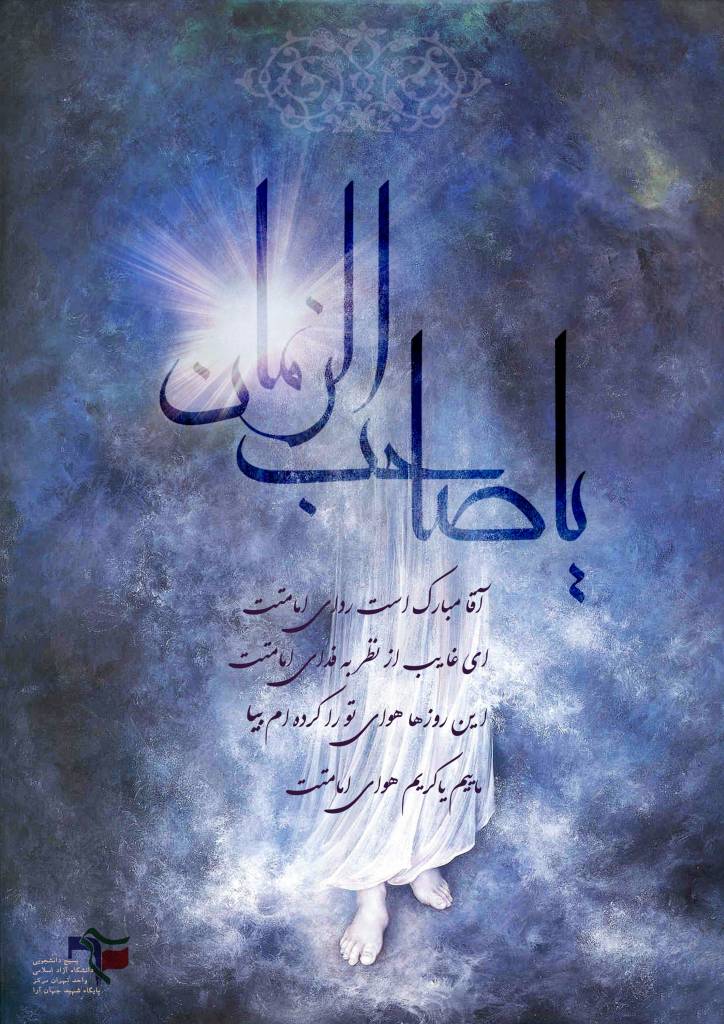 یا صاحب
الزمان
آقا مبارک است ردای امامتت
ای غایب از نظر به فدای امامتت
این روزها هوای تو را کرده ام بیا
ماییم یاکریم هوای امامتت
بسیج دانشجویی
دانشگاه آزاد اسلامی
واحد تهران مرکز
پایگاه شهید جهان آرا